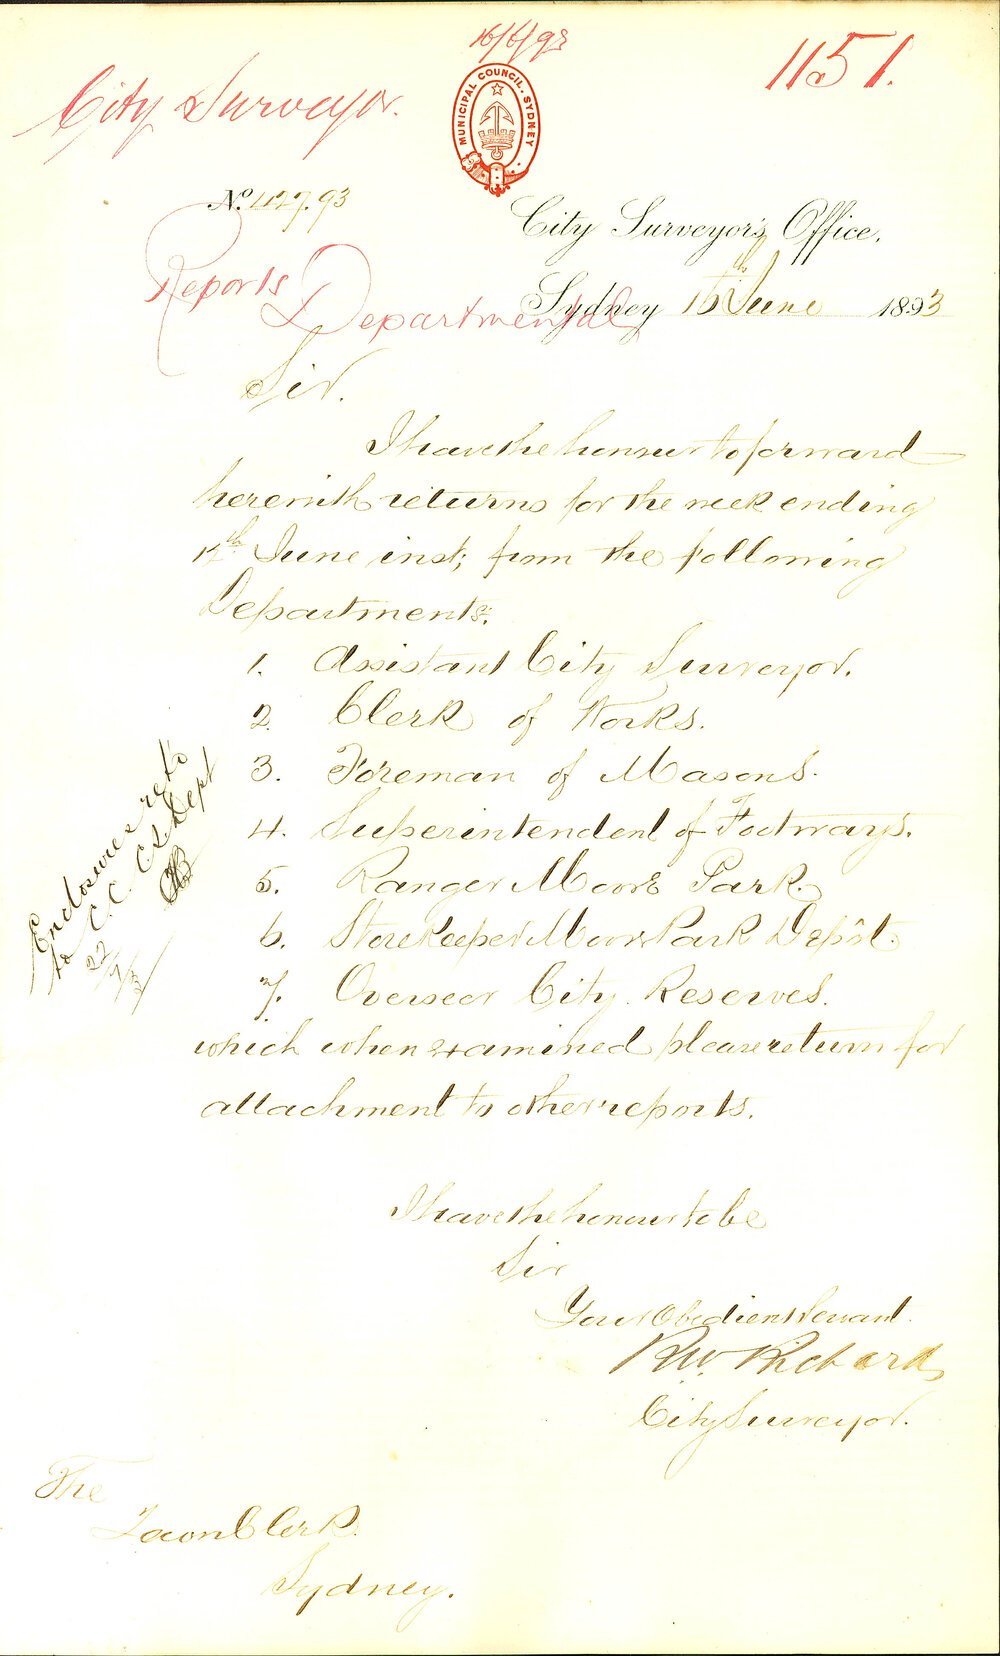 16/6/93
1151.
City Surveyor.
MUNICIPAL COUNCIL. SYDNEY
No. 427.93
City Surveyor's Office,
Reports
Departmental
Sydney 16th June 1893
Sir.
I have the honour to forward
herewith returns for the week ending
June inst; from the following
Departments:
1. Assistant City Surveyor.
2. Clerk of Works.
3. Foreman of Masons.
4. Superintendent of Footways.
5. Ranger Moore Park.
6. Storekeeper Moore Park Depôt.
7. Overseer City Reserves.
which when examined please return for
attachment to other reports.
Enclosures retd
to C.C. CS Dept
22/7/3
I have the honour to be
Sir
Your Obedient Servant.
R.W. Richards
City Surveyor.
The
Town Clerk.
Sydney.